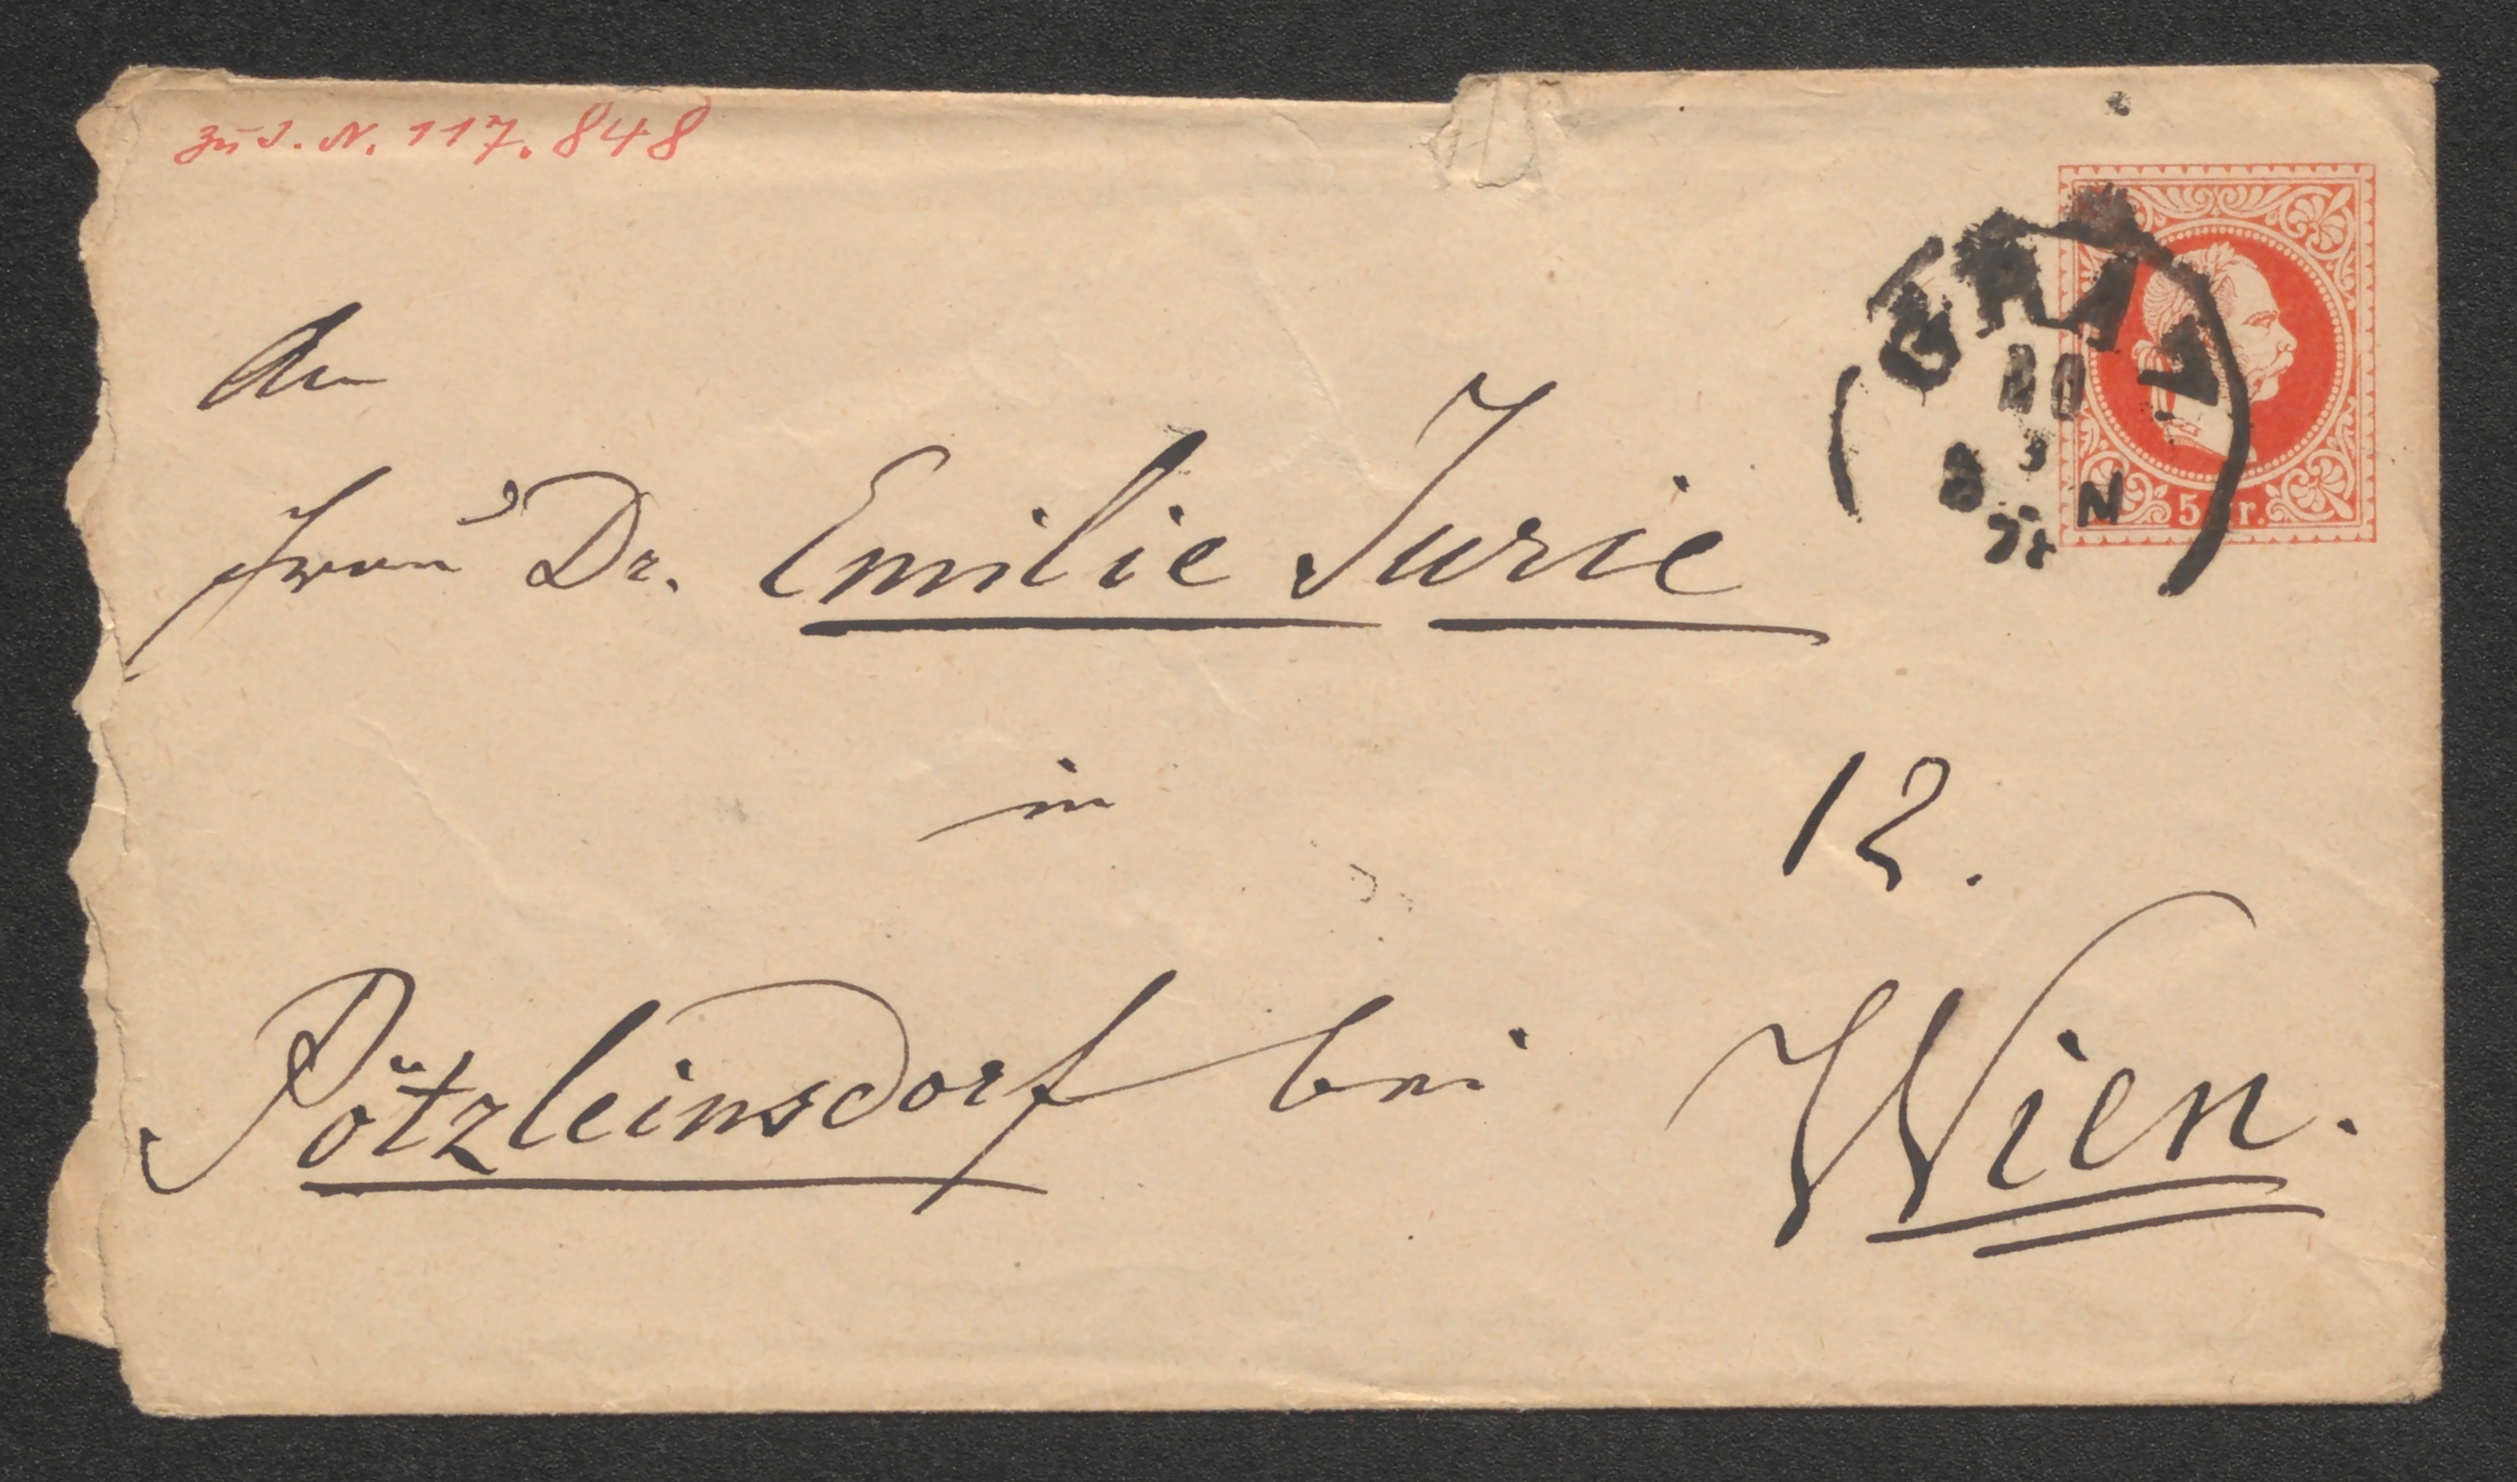 zu I. N. 117.848
An
Frau Dr. Emilie Jurie
in
12.
Pötzleinsdorf bei Wien.
GRAZ
20
8 N
5 kr.